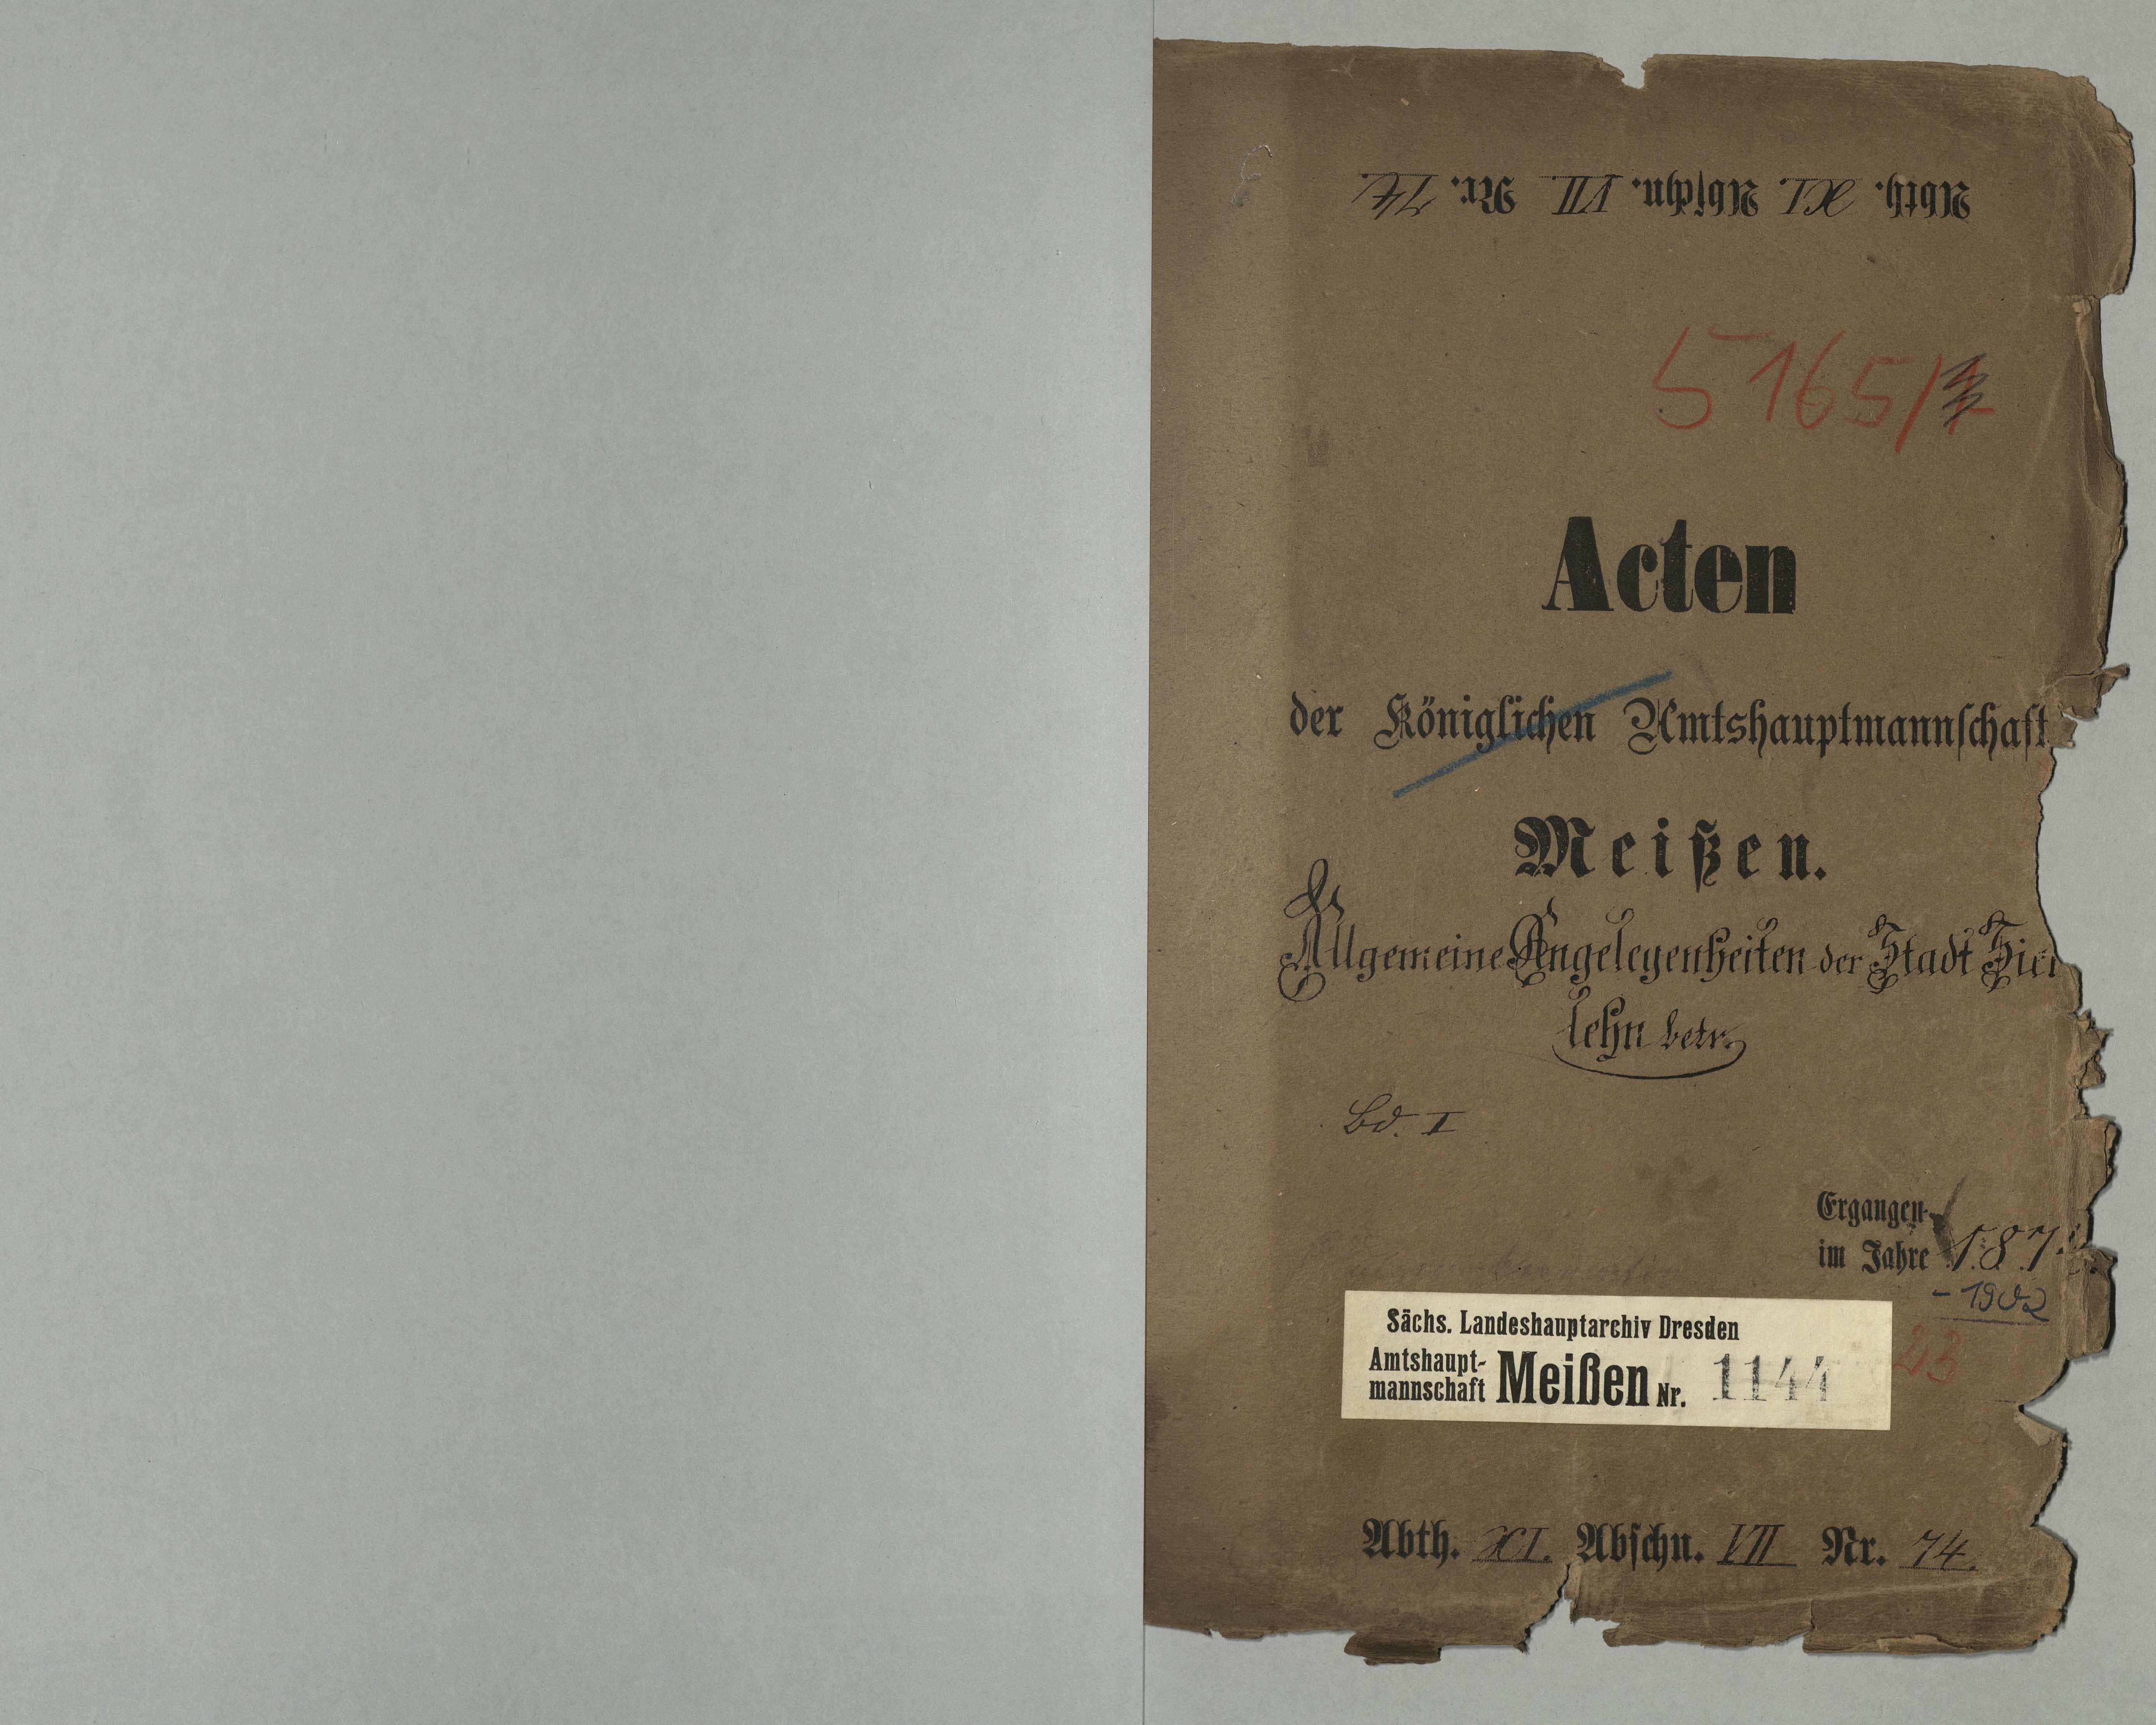 Abth. XI. Abschn. VII. Nr. 74.
5165/
Acten
der Königlichen Amtshauptmannschaft
Meißen.
Allgemeine Angelegenheiten der Stadt Sie
lehn betr.
Bd. I
Ergangen
im Jahre 187
- 1902
23
Sächs. Landeshauptarchiv Dresden
Amtshaupt-
mannschaft Meißen Nr. 1144
Abth. XI. Abschn. VII Nr. 74.